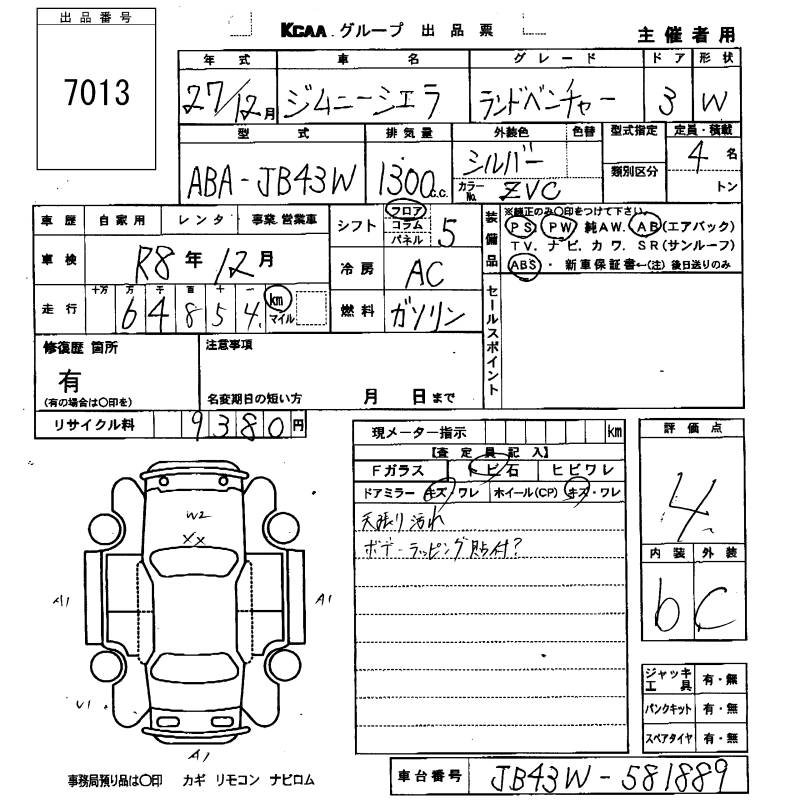 出品番号
7013
KCAA グループ 出品票
主催者用
年式 車名 グレード ドア 形状
27/12月 ジムニーシエラ ランドベンチャー 3 W
型式 排気量 外装色 色替 型式指定 定員・積載
ABA-JB43W 1300 C.C. シルバー 4 名
類別区分
カラーNo. ZVC トン
車歴 自家用 レンタ 事業.営業車
シフト フロア コラム パネル 5
装備品 ※純正のみ〇印をつけて下さい。
PS. PW 純AW. AB(エアバッグ)
TV. ナビ. カワ. SR(サンルーフ)
ABS・ 新車保証書←(注)後日送りのみ
車検 R8年12月
冷房 AC
走行 十万 万 千 百 十 一
64854. km マイル
燃料 ガソリン
セールスポイント
修復歴 箇所
有
(有の場合は〇印を)
注意事項
名変期日の短い方 月 日まで
リサイクル料 9380円
現メーター指示 km
【査定員記入】
Fガラス トビ石 ヒビワレ
ドアミラー キズ/ワレ ホイール(CP) キズ・ワレ
天張り汚れ
ボデーラッピング貼付?
評価点
4
内装 外装
b C
W2
XX
A1
A1
U1
A1
ジャッキ工具 有・無
パンクキット 有・無
スペアタイヤ 有・無
事務局預り品は〇印 カギ リモコン ナビロム
車台番号 JB43W-581889